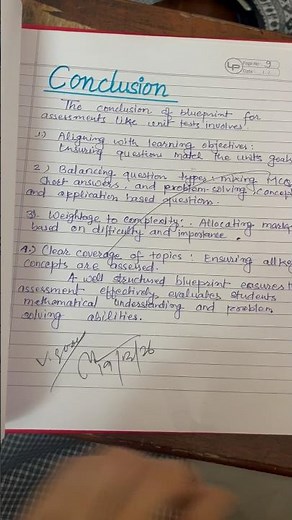 Page No: 9
Date:
Conclusion
The conclusion of blueprint for
assessments like unit tests involves:
1) Aligning with learning objectives:
Ensuring questions match the units goals
2) Balancing question types: mixing MCQ
short answers, and problem-solving concep
and application based questions.
3) Weightage to complexity: Allocating marks
based on difficulty and importance.
4.) Clear coverage of topics: Ensuring all key
concepts are assessed.
A well structured blueprint ensures
assessment effectively evaluates students
mathematical understanding and problem
solving abilities.
V. Good